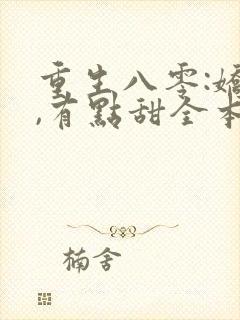 重生八零:嬌
,有點甜全本
楠舍